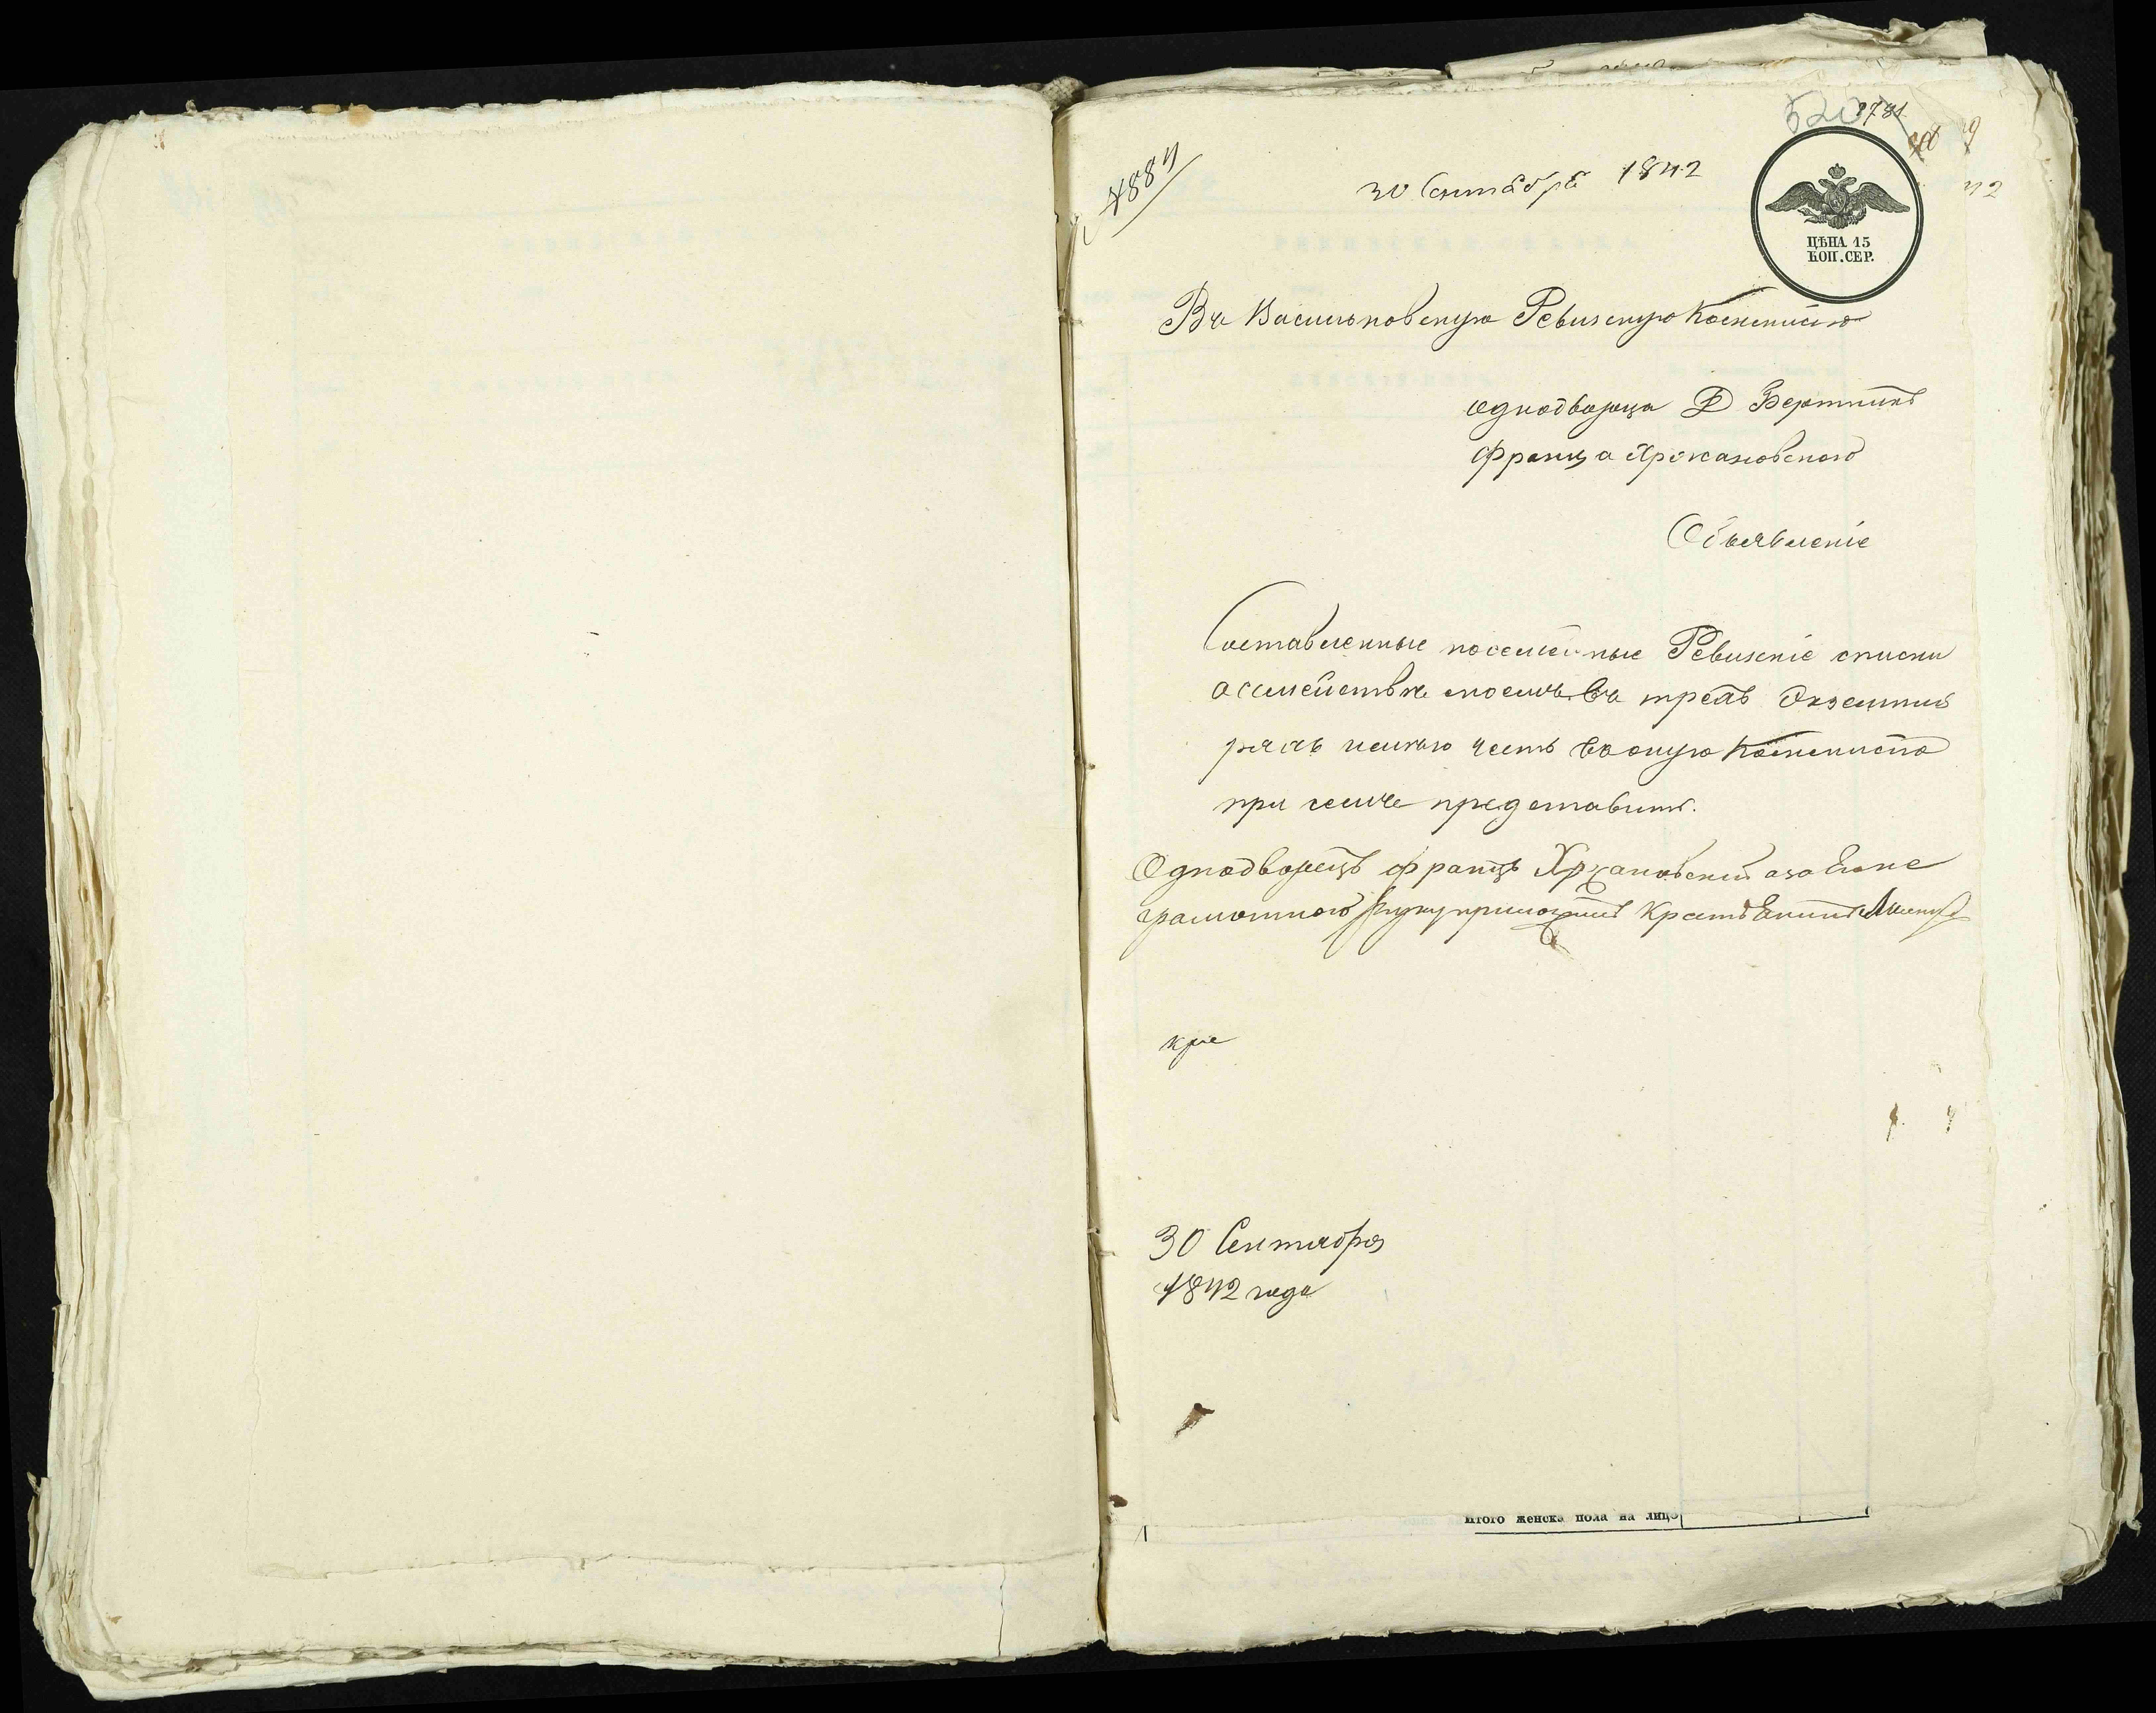 520
2781
4884
30 Сентября 1842
42
ЦѢНА 15
КОП. СЕР.
Въ Васильковскую Ревизскую Коммисію
однодворца Д Бертники
Франца Хржановскаго
Объявленіе
Составленные посемейные Ревизскіе списки
о семействѣ моемъ въ трехъ Экземпля
рахъ имѣю честь въ оную Коммисію
при семъ представить.
Однодворецъ Францъ Хржановскій а за Его не
грамотного руку приложилъ
кре
30 Сентября
1842 года
Итого женска пола на лицо